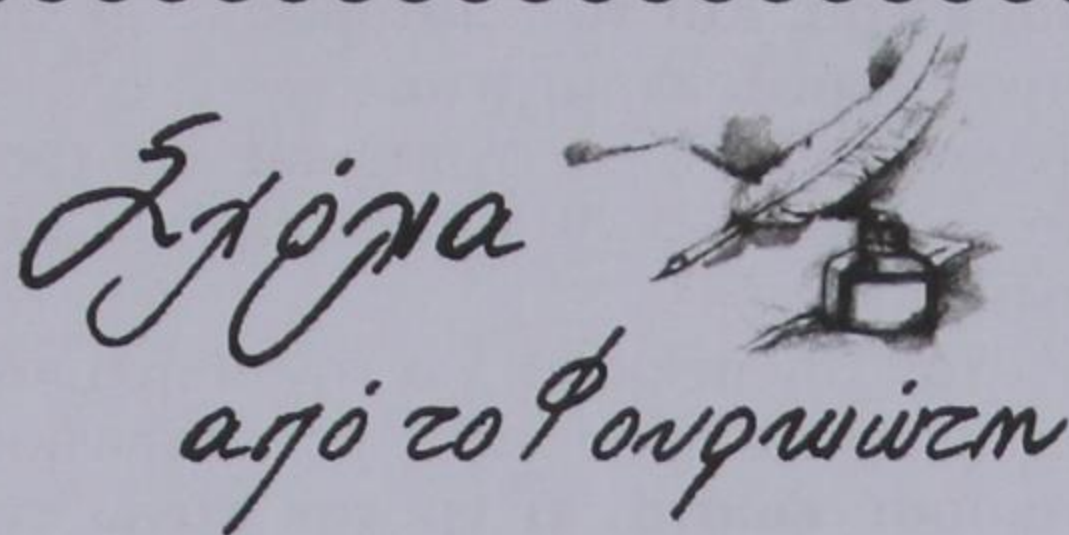 Σχόλια
από το Φουρνιώτη